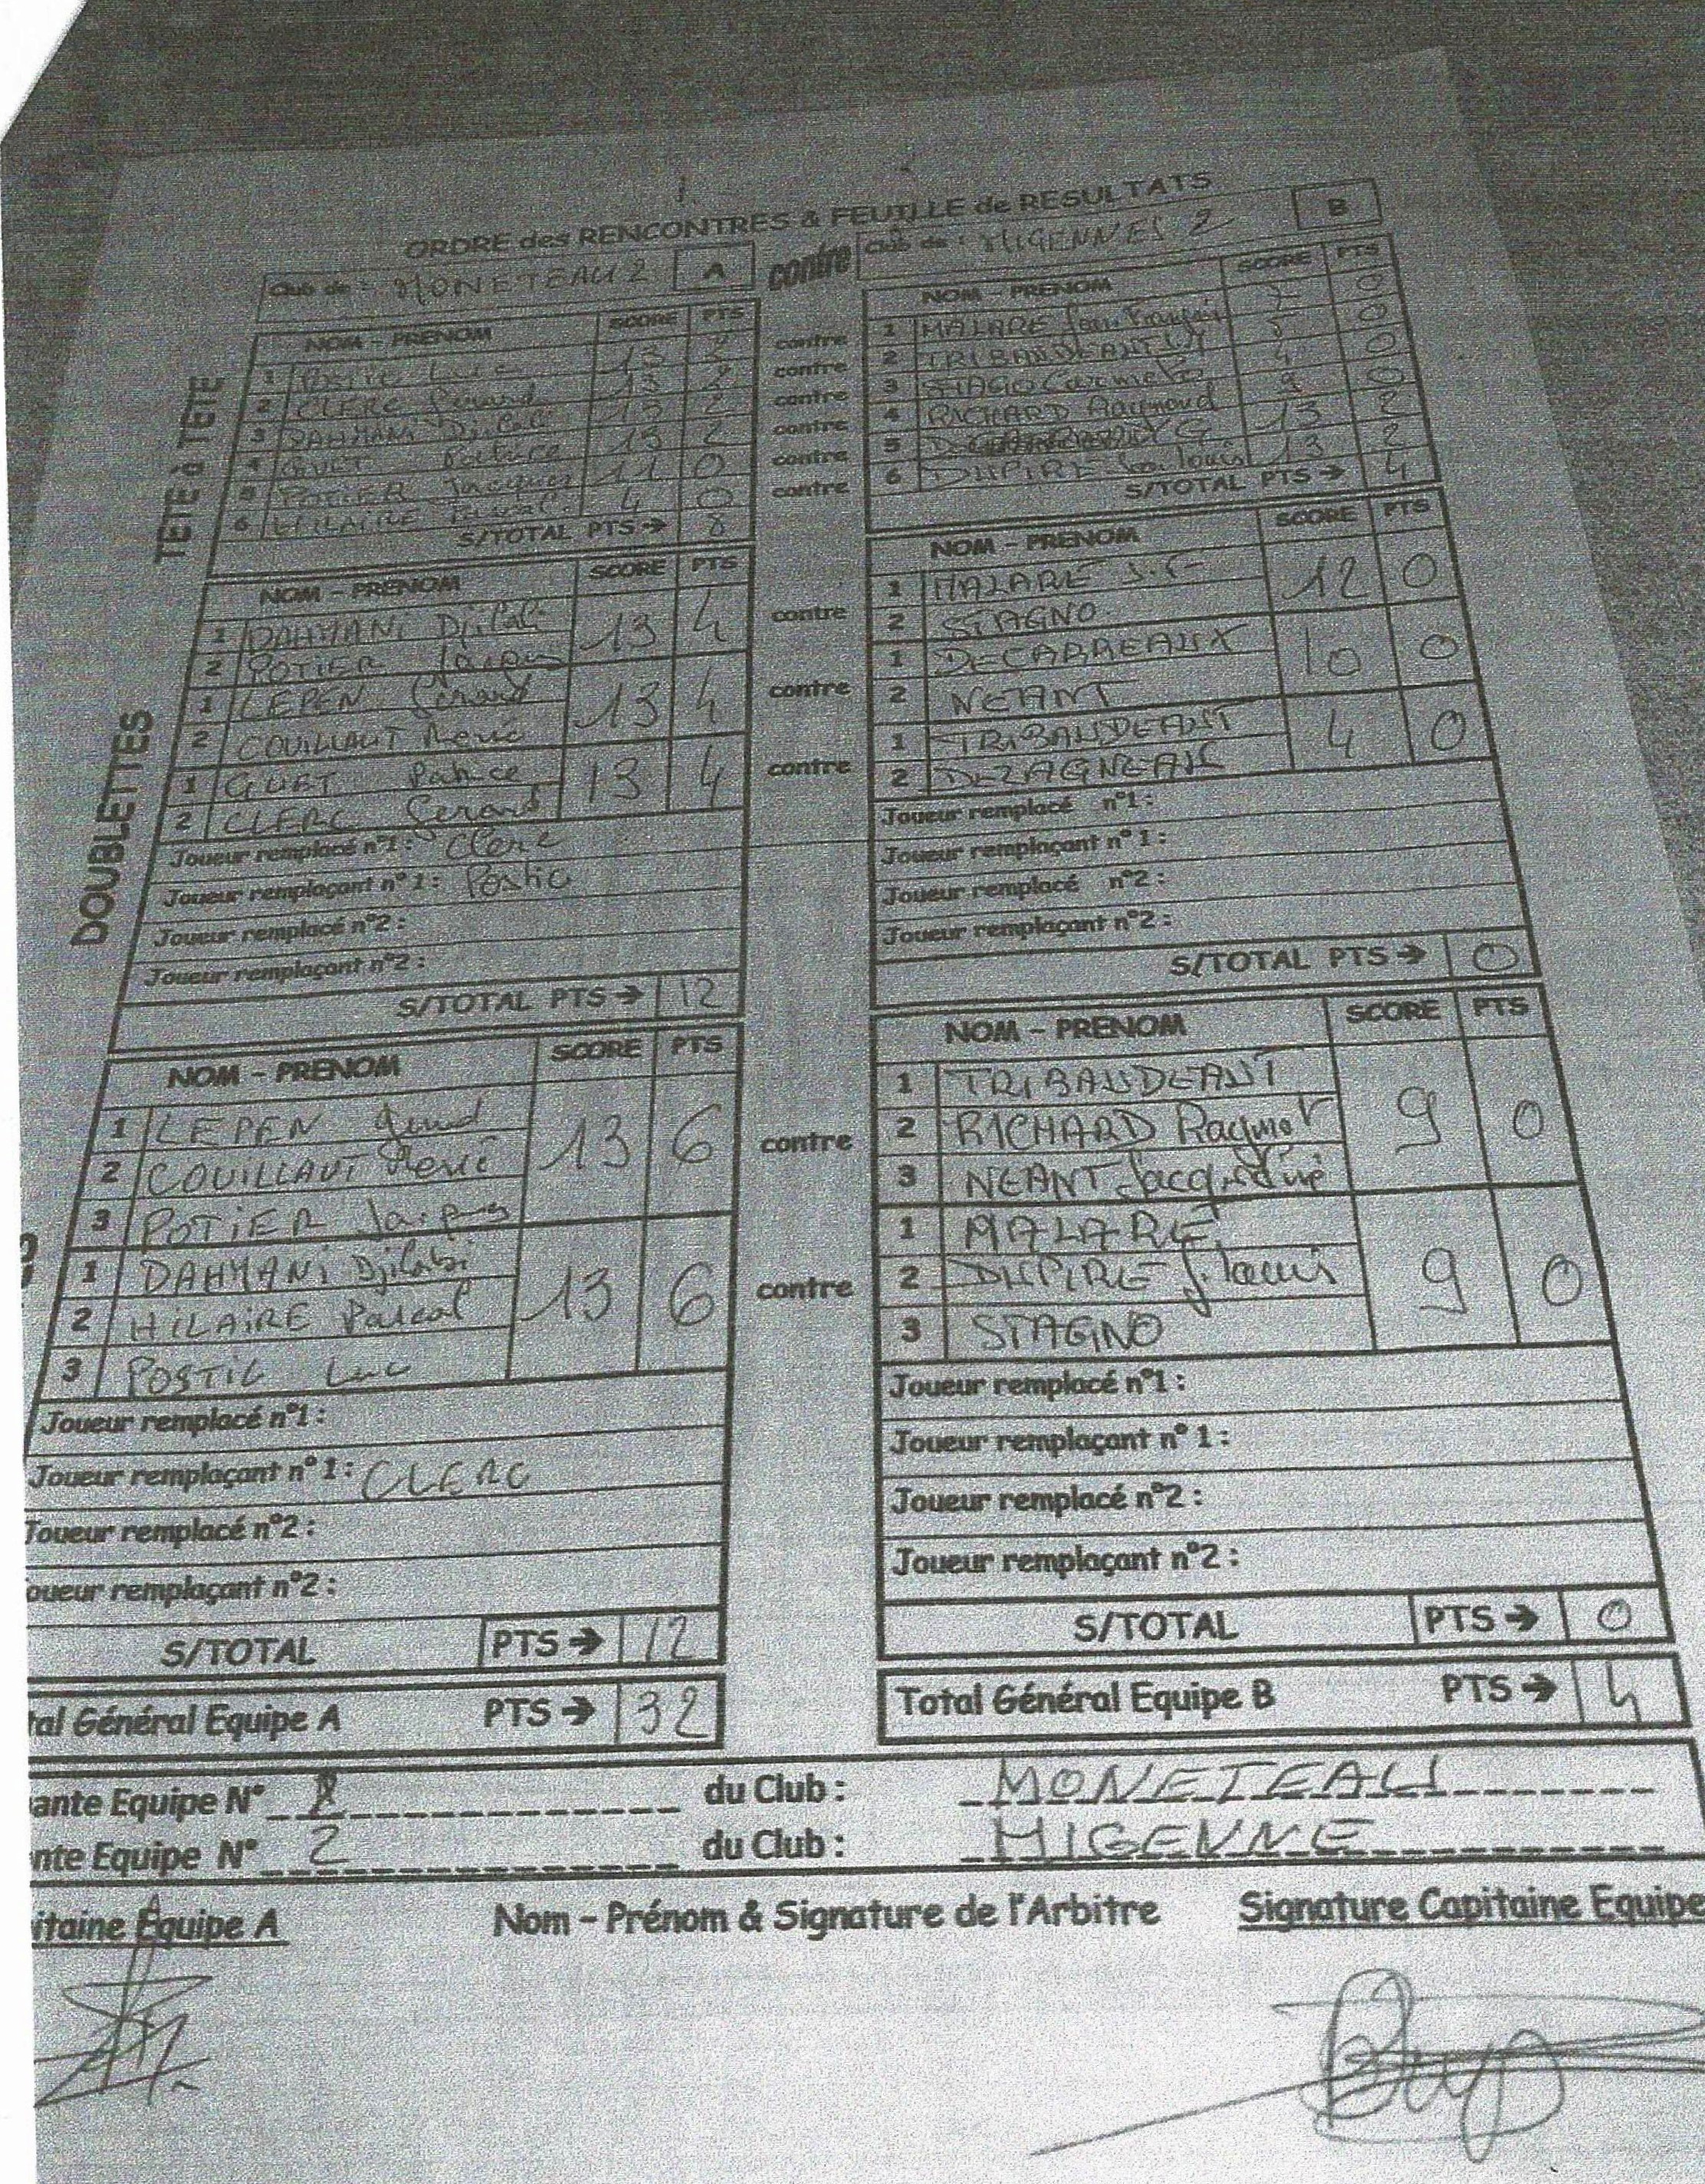 ORDRE des RENCONTRES & FEUILLE de RESULTATS
Club de : MONETEAU 2 A contre Club de : MIGENNES 2 B
TÊTE à TÊTE
NOM - PRENOM SCORE PTS NOM - PRENOM SCORE PTS
1 POSTIC Luc 13 2 contre 1 MALARE 7 0
2 CLERC Gerard 13 2 contre 2 0
3 DAHMANi Djilali 13 2 contre 3 0
4 GUET Patrice 13 2 contre 4 RICHARD Raymond 9 0
5 POTIER Jacques 11 0 contre 5 13 2
6 HILAIRE 4 0 contre 6 DUPIRE 13 2
S/TOTAL PTS → 8 S/TOTAL PTS → 4
DOUBLETTES
NOM - PRENOM SCORE PTS NOM - PRENOM SCORE PTS
1 DAHMANi Djilali 13 4 contre 1 MALARE J.F 12 0
2 POTIER Jacques 2 STAGNO
1 LEPEN Gerard 13 4 contre 1 DECARREAUX 10 0
2 COUILLAUT René 2 NEANT
1 GUET Patrice 13 4 contre 1 TRIBAUDEANT 4 0
2 CLERC Gerard 2
Joueur remplacé n°1 : Clerc Joueur remplacé n°1 :
Joueur remplaçant n° 1 : Postic Joueur remplaçant n° 1 :
Joueur remplacé n°2 : Joueur remplacé n°2 :
Joueur remplaçant n°2 : Joueur remplaçant n°2 :
S/TOTAL PTS → 12 S/TOTAL PTS → 0
NOM - PRENOM SCORE PTS NOM - PRENOM SCORE PTS
1 LEPEN Gerard 13 6 contre 1 TRIBAUDEANT 9 0
2 COUILLAUT René 2 RICHARD Raymond
3 POTIER Jacques 3 NEANT Jacqueline
1 DAHMANi Djilali 13 6 contre 1 MALARE 9 0
2 HILAIRE Pascal 2 DUPIRE J. louis
3 POSTIC Luc 3 STAGNO
Joueur remplacé n°1 : Joueur remplacé n°1 :
Joueur remplaçant n° 1 : CLERC Joueur remplaçant n° 1 :
Joueur remplacé n°2 : Joueur remplacé n°2 :
oueur remplaçant n°2 : Joueur remplaçant n°2 :
S/TOTAL PTS → 12 S/TOTAL PTS → 0
tal Général Equipe A PTS → 32 Total Général Equipe B PTS → 4
ante Equipe N° 2 du Club : MONETEAU
nte Equipe N° 2 du Club : MIGENNE
itaine Equipe A Nom - Prénom & Signature de l'Arbitre Signature Capitaine Equipe